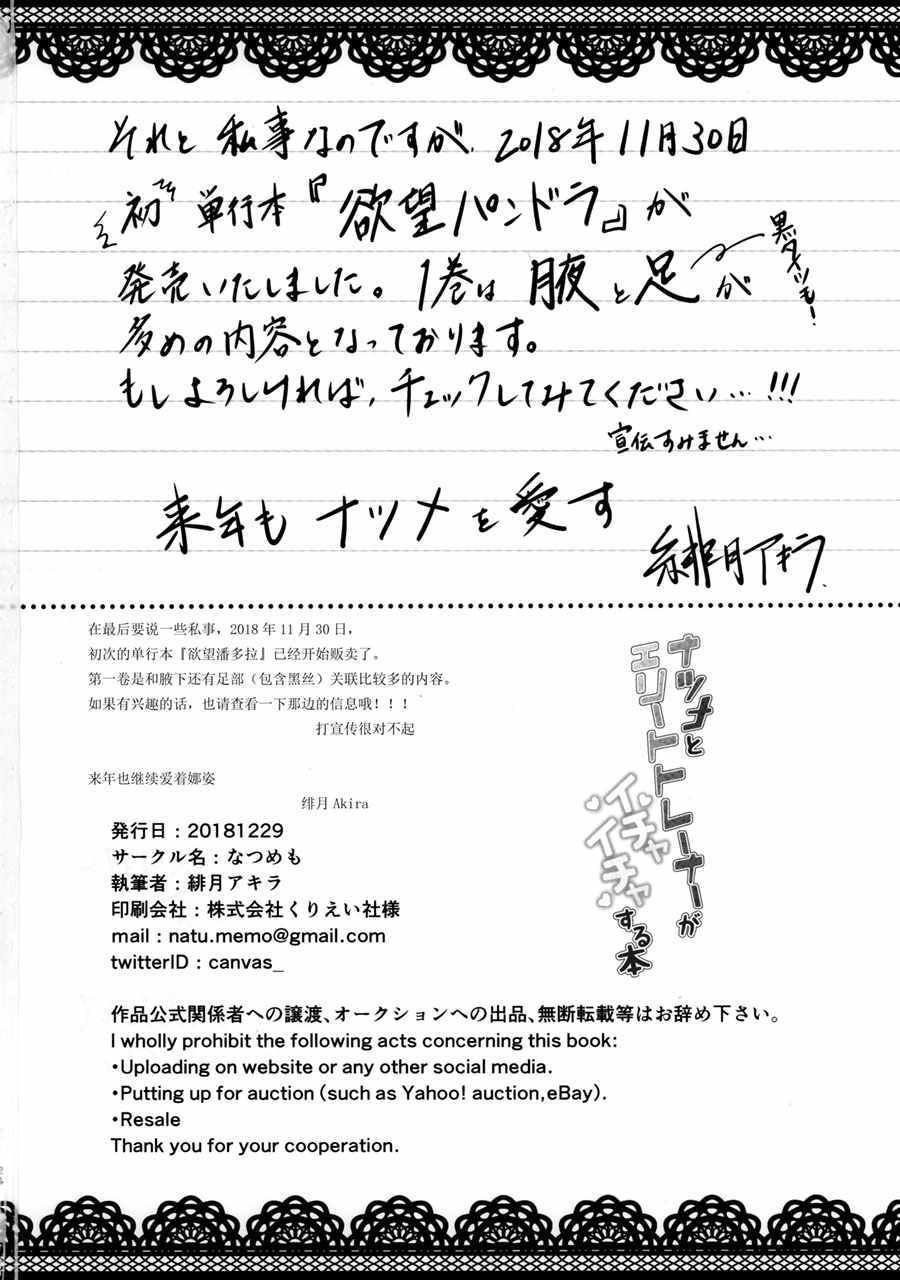 それと 私事なのですが、2018年11月30日
初 単行本『欲望パンドラ』が
発売いたしました。1巻は 腋と足が
黒タイツも!
多めの内容となっております。
もしよろしければ、チェックしてみてください…!!!
宣伝すみません…
来年も ナツメを愛す
緋月アキラ
在最后要说一些私事，2018年11月30日，
初次的单行本『欲望潘多拉』已经开始贩卖了。
第一卷是和腋下还有足部（包含黑丝）关联比较多的内容。
如果有兴趣的话，也请查看一下那边的信息哦！！！
打宣传很对不起
来年也继续爱着娜姿
绯月Akira
ナツメと
エリートトレーナーが
イチャ
イチャ
する本
発行日：20181229
サークル名：なつめも
執筆者：緋月アキラ
印刷会社：株式会社くりえい社様
mail：natu.memo@gmail.com
twitterID：canvas_
作品公式関係者への譲渡、オークションへの出品、無断転載等はお辞め下さい。
I wholly prohibit the following acts concerning this book:
・Uploading on website or any other social media.
・Putting up for auction (such as Yahoo! auction,eBay).
・Resale
Thank you for your cooperation.